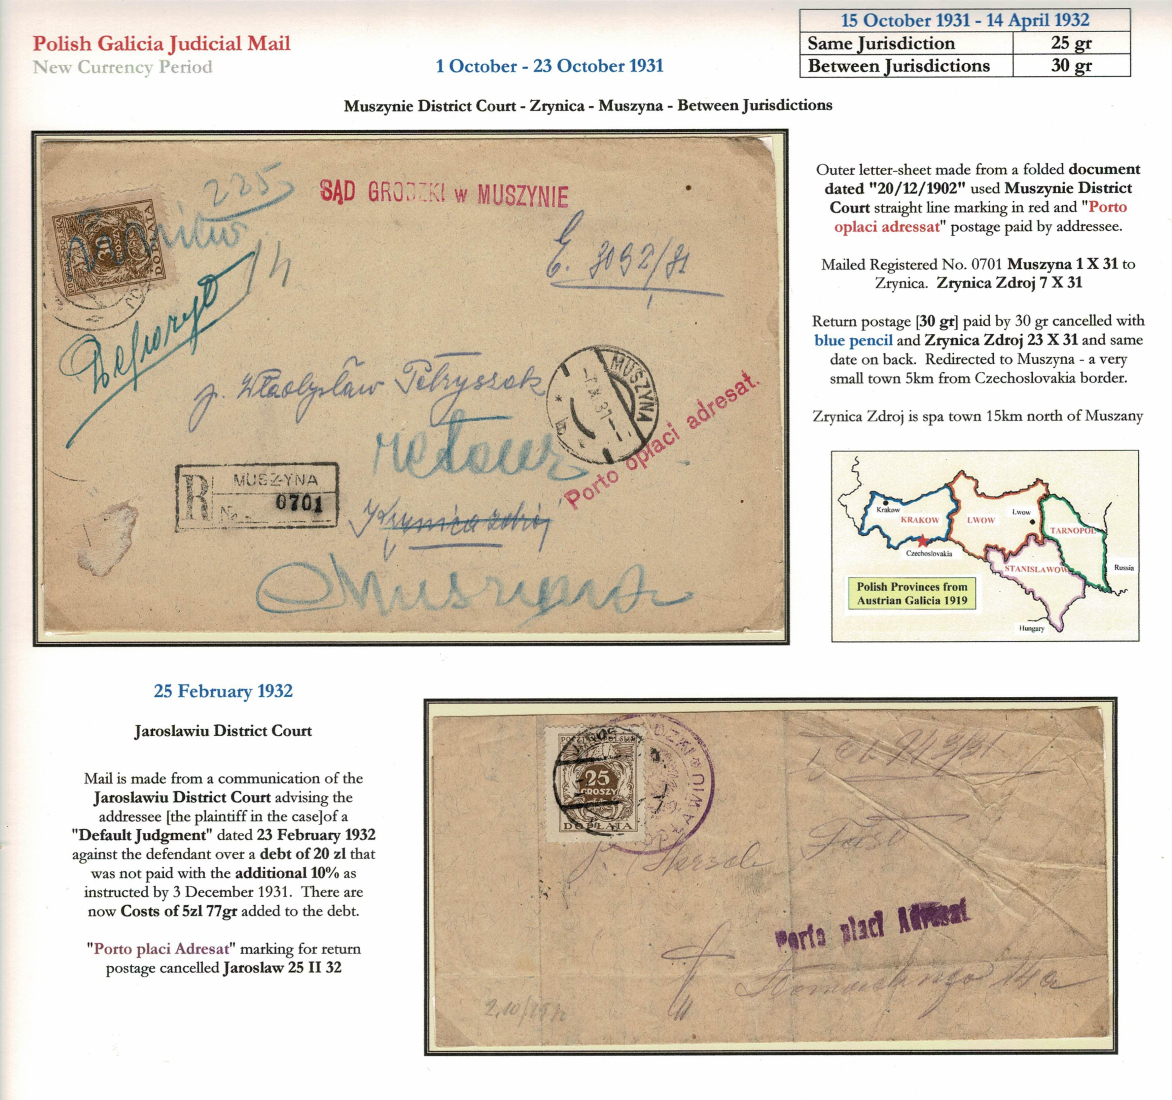 Polish Galicia Judicial Mail
New Currency Period
1 October - 23 October 1931
15 October 1931 - 14 April 1932
Same Jurisdiction 25 gr
Between Jurisdictions 30 gr
Muszynie District Court - Zrynica - Muszyna - Between Jurisdictions
225
SĄD GRODZKI w MUSZYNIE
30
GROSZY
DOPŁATA
E. 3092/31
p. Władysław Petryszak
MUSZYNA
retour
Porto opłaci adresat.
R
MUSZYNA
No. 0701
Krynica zdrój
Muszyna
Outer letter-sheet made from a folded document
dated "20/12/1902" used Muszynie District
Court straight line marking in red and "Porto
oplaci adressat" postage paid by addressee.
Mailed Registered No. 0701 Muszyna 1 X 31 to
Zrynica. Zrynica Zdroj 7 X 31
Return postage [30 gr] paid by 30 gr cancelled with
blue pencil and Zrynica Zdroj 23 X 31 and same
date on back. Redirected to Muszyna - a very
small town 5km from Czechoslovakia border.
Zrynica Zdroj is spa town 15km north of Muszany
Krakow
KRAKOW
LWOW
Lwow
TARNOPOL
Czechoslovakia
STANISLAWOW
Russia
Polish Provinces from
Austrian Galicia 1919
Hungary
25 February 1932
Jaroslawiu District Court
Mail is made from a communication of the
Jaroslawiu District Court advising the
addressee [the plaintiff in the case]of a
"Default Judgment" dated 23 February 1932
against the defendant over a debt of 20 zl that
was not paid with the additional 10% as
instructed by 3 December 1931. There are
now Costs of 5zl 77gr added to the debt.
"Porto placi Adresat" marking for return
postage cancelled Jaroslaw 25 II 32
25
GROSZY
DOPŁATA
Porto płaci Adresat
14a